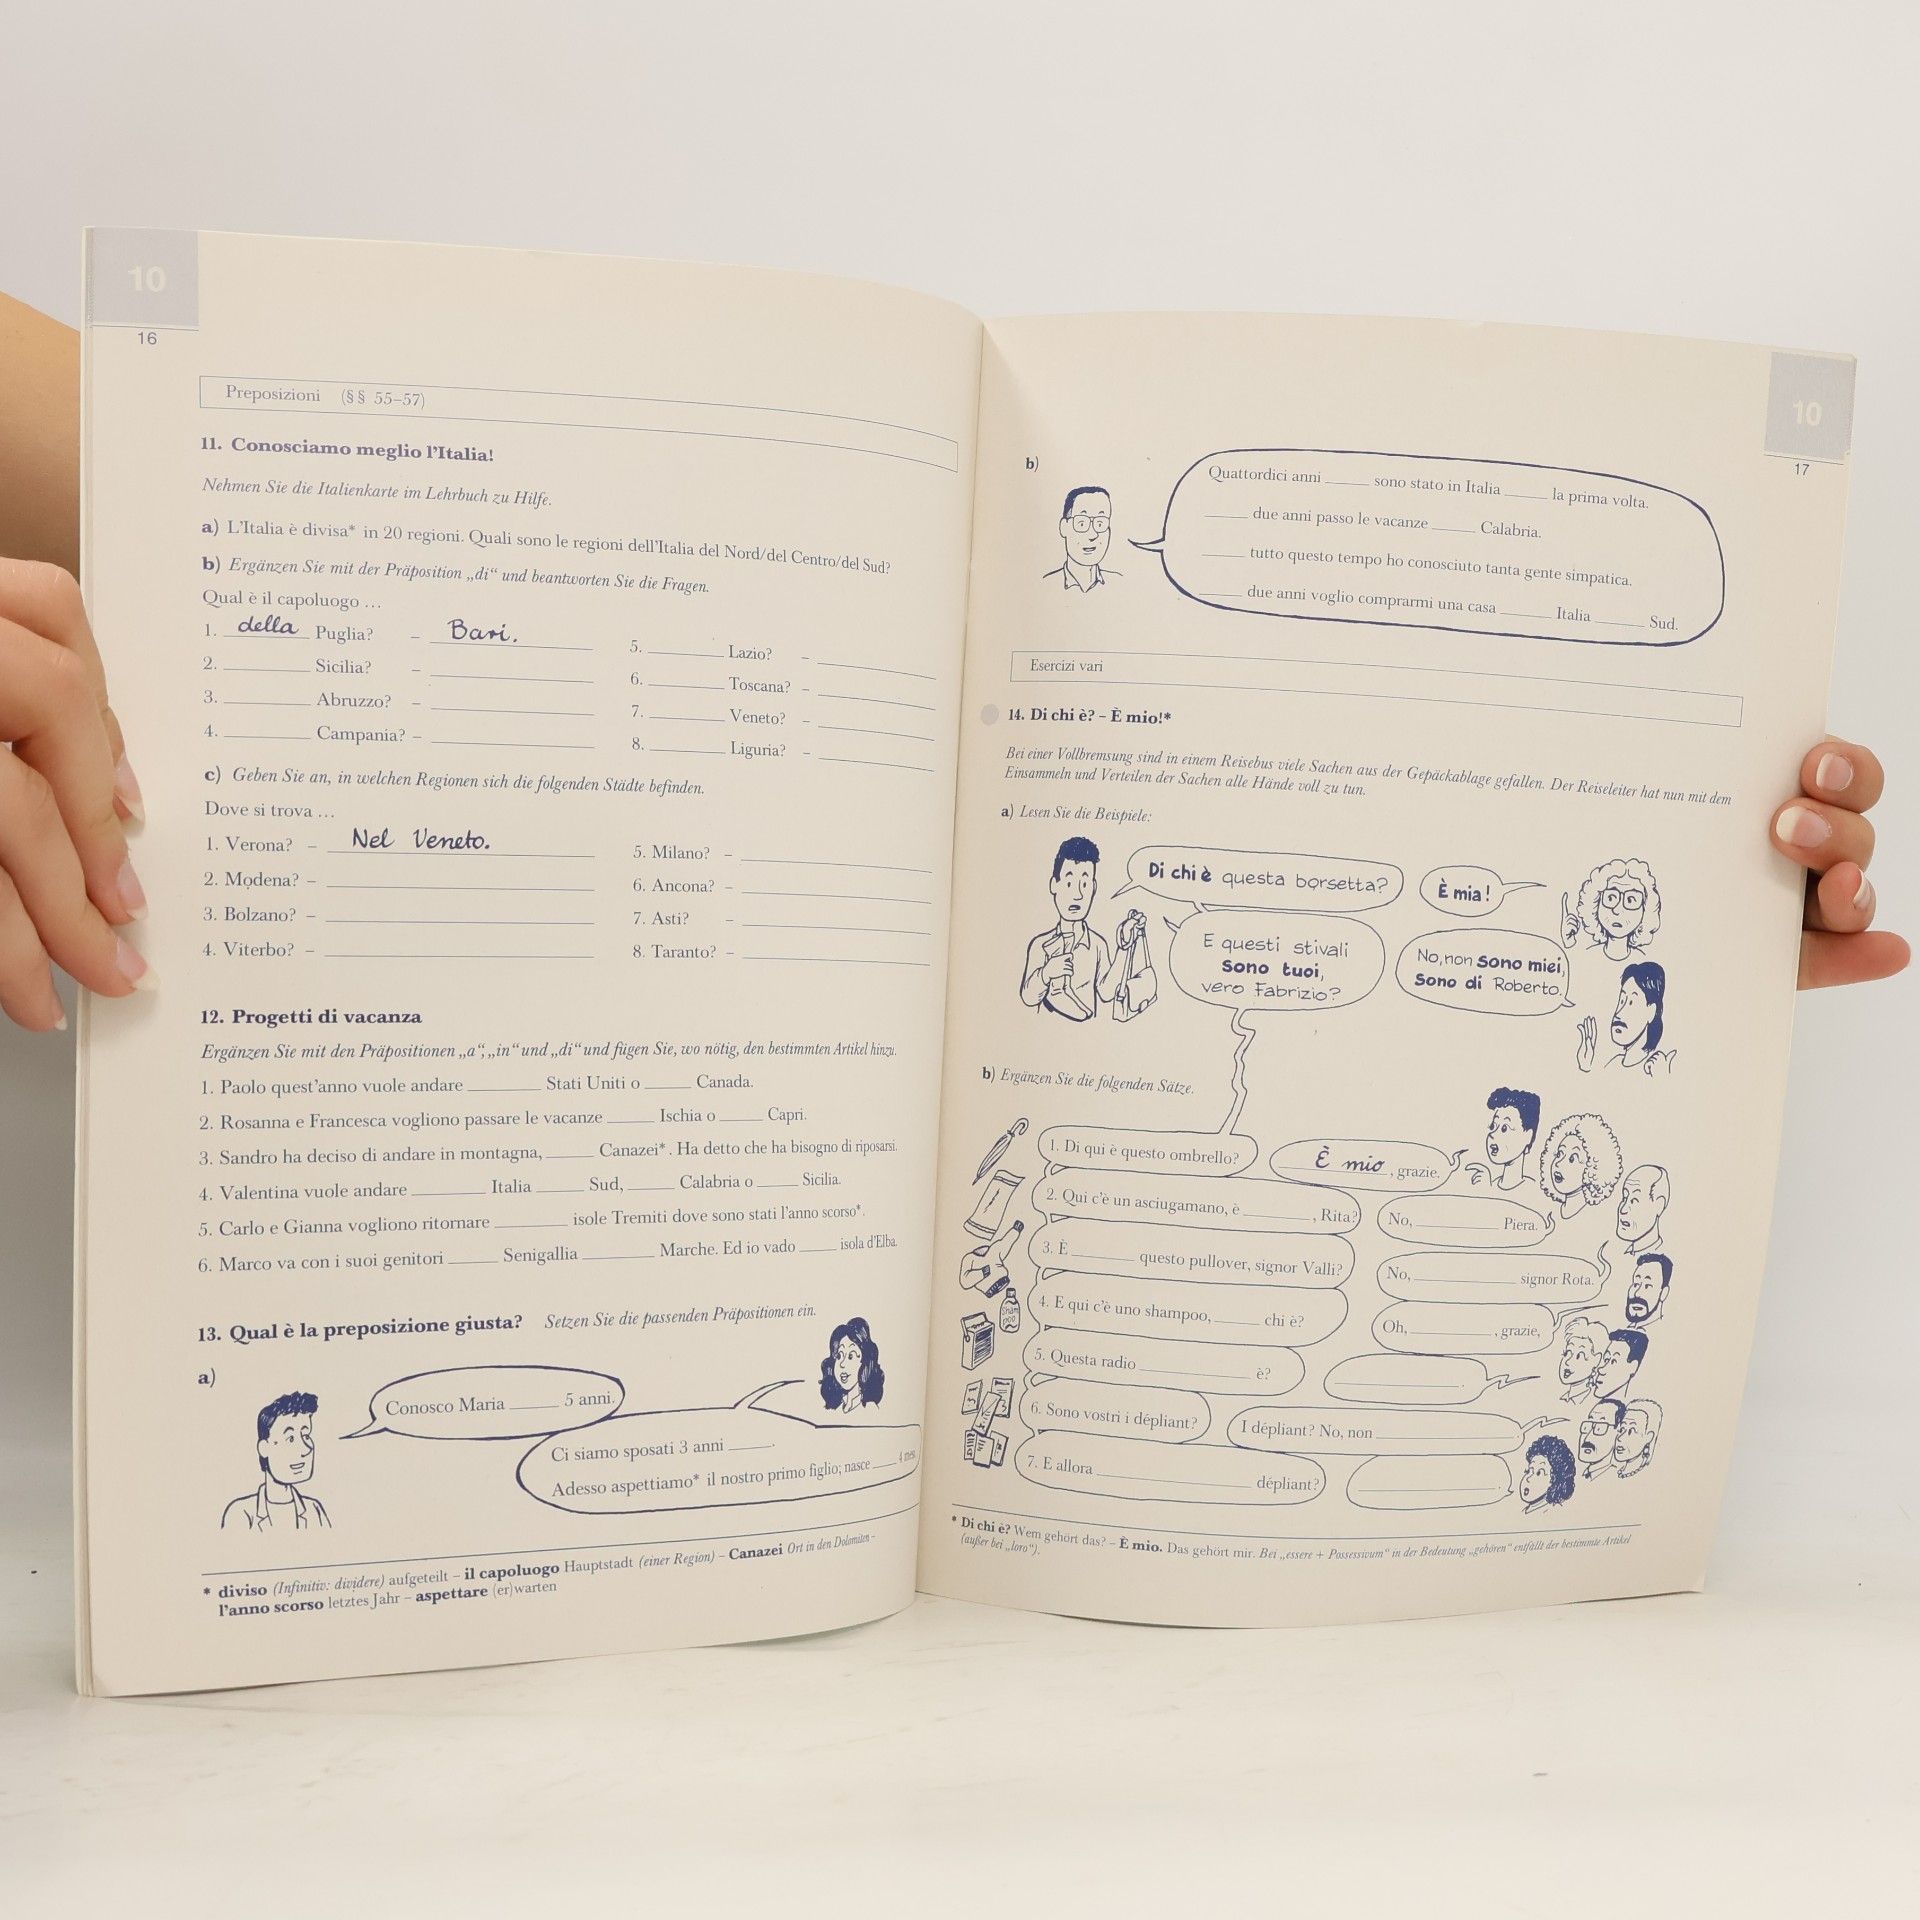 10
16
Preposizioni (§§ 55–57)
11. Conosciamo meglio l'Italia!
Nehmen Sie die Italienkarte im Lehrbuch zu Hilfe.
a) L'Italia è divisa* in 20 regioni. Quali sono le regioni dell'Italia del Nord/del Centro/del Sud?
b) Ergänzen Sie mit der Präposition „di“ und beantworten Sie die Fragen.
Qual è il capoluogo …
1. della Puglia? – Bari.
2. ______ Sicilia? – ______
3. ______ Abruzzo? – ______
4. ______ Campania? – ______
5. ______ Lazio? – ______
6. ______ Toscana? – ______
7. ______ Veneto? – ______
8. ______ Liguria? – ______
c) Geben Sie an, in welchen Regionen sich die folgenden Städte befinden.
Dove si trova …
1. Verona? – Nel Veneto.
2. Modena? – ______
3. Bolzano? – ______
4. Viterbo? – ______
5. Milano? – ______
6. Ancona? – ______
7. Asti? – ______
8. Taranto? – ______
12. Progetti di vacanza
Ergänzen Sie mit den Präpositionen „a“, „in“ und „di“ und fügen Sie, wo nötig, den bestimmten Artikel hinzu.
1. Paolo quest'anno vuole andare ______ Stati Uniti o ______ Canada.
2. Rosanna e Francesca vogliono passare le vacanze ______ Ischia o ______ Capri.
3. Sandro ha deciso di andare in montagna, ______ Canazei*. Ha detto che ha bisogno di riposarsi.
4. Valentina vuole andare ______ Italia ______ Sud, ______ Calabria o ______ Sicilia.
5. Carlo e Gianna vogliono ritornare ______ isole Tremiti dove sono stati l'anno scorso*.
6. Marco va con i suoi genitori ______ Senigallia ______ Marche. Ed io vado ______ isola d'Elba.
13. Qual è la preposizione giusta? Setzen Sie die passenden Präpositionen ein.
a)
Conosco Maria ______ 5 anni.
Ci siamo sposati 3 anni ______.
Adesso aspettiamo* il nostro primo figlio; nasce ______ 4 mesi.
* diviso (Infinitiv: dividere) aufgeteilt – il capoluogo Hauptstadt (einer Region) – Canazei Ort in den Dolomiten –
l'anno scorso letztes Jahr – aspettare (er)warten
10
17
b)
Quattordici anni ______ sono stato in Italia ______ la prima volta.
______ due anni passo le vacanze ______ Calabria.
______ tutto questo tempo ho conosciuto tanta gente simpatica.
______ due anni voglio comprarmi una casa ______ Italia ______ Sud.
Esercizi vari
14. Di chi è? – È mio!*
Bei einer Vollbremsung sind in einem Reisebus viele Sachen aus der Gepäckablage gefallen. Der Reiseleiter hat nun mit dem
Einsammeln und Verteilen der Sachen alle Hände voll zu tun.
a) Lesen Sie die Beispiele:
Di chi è questa borsetta?
È mia!
E questi stivali
sono tuoi,
vero Fabrizio?
No, non sono miei,
sono di Roberto.
b) Ergänzen Sie die folgenden Sätze.
1. Di qui è questo ombrello?
È mio, grazie.
2. Qui c'è un asciugamano, è ______, Rita?
No, ______ Piera.
3. È ______ questo pullover, signor Valli?
No, ______ signor Rota.
4. E qui c'è uno shampoo, ______ chi è?
Oh, ______, grazie,
5. Questa radio ______ è?
______.
6. Sono vostri i dépliant?
I dépliant? No, non ______.
7. E allora ______ dépliant?
______.
* Di chi è? Wem gehört das? – È mio. Das gehört mir. Bei „essere + Possessivum“ in der Bedeutung „gehören“ entfällt der bestimmte Artikel
(außer bei „loro“).